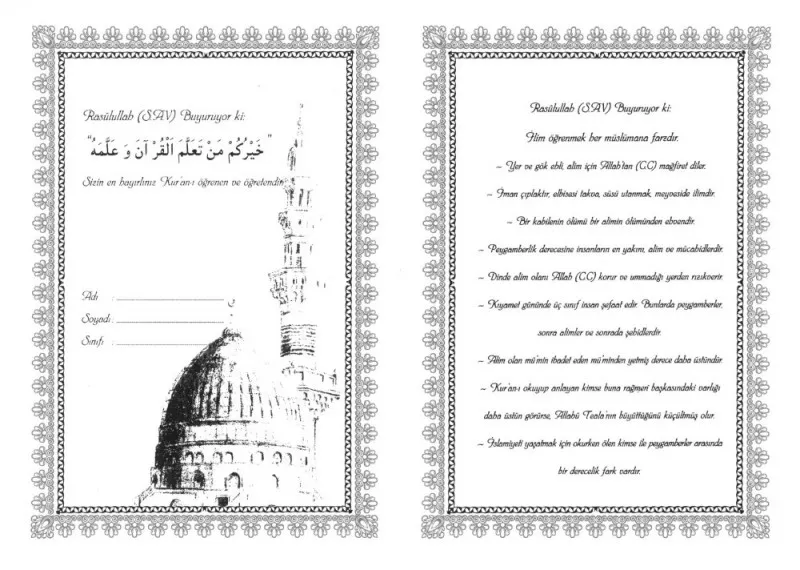 Rasûlullah (SAV) Buyuruyor ki:
"خَيْرُكُمْ مَنْ تَعَلَّمَ الْقُرْآنَ وَ عَلَّمَهُ"
Sizin en hayırlınız Kur'an-ı öğrenen ve öğretendir.
Adı :
Soyadı:
Sınıfı :
Rasûlullah (SAV) Buyuruyor ki:
İlim öğrenmek her müslümana farzdır.
– Yer ve gök ehli, alim için Allah'tan (CC) mağfiret diler.
– İman çıplaktır, elbisesi takva, süsü utanmak, meyveside ilimdir.
– Bir kabilenin ölümü bir alimin ölümünden ehvendir.
– Peygamberlik derecesine insanların en yakını, alim ve mücahidlerdir.
– Dinde alim olanı Allah (CC) korur ve ummadığı yerden rızıkverir.
– Kıyamet gününde üç sınıf insan şefaat edir. Bunlarda peygamberler,
sonra alimler ve sonrada şehidlerdir.
– Alim olan mü'min ibadet eden mü'minden yetmiş derece daha üstündür.
– Kur'an-ı okuyup anlayan kimse buna rağmen başkasındaki varlığı
daha üstün görürse, Allahü Teala'nın büyüttüğünü küçültmüş olur.
– İslamiyeti yaşatmak için okurken ölen kimse ile peygamberler arasında
bir derecelik fark vardır.